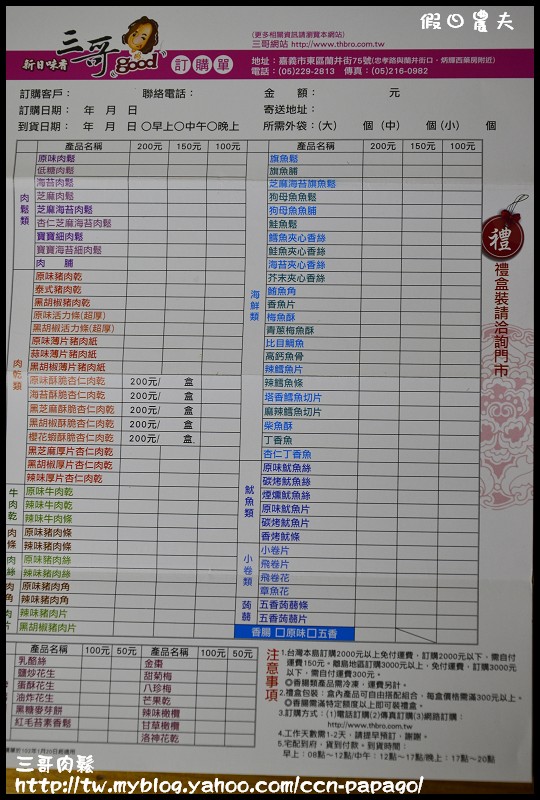 假日農夫
(更多相關資訊請瀏覽本網站)
三哥網站 http://www.thbro.com.tw
新日味香 三哥 "good" 訂購單
地址：嘉義市東區蘭井街75號(忠孝路與蘭井街口，炳輝西藥房附近)
電話：(05)229-2813 傳真：(05)216-0982
訂購客戶： 聯絡電話： 金 額： 元
訂購日期： 年 月 日 寄送地址：
到貨日期： 年 月 日 ○早上○中午○晚上 所需外袋：(大) 個 (中) 個 (小) 個
產品名稱 200元 150元 100元
肉鬆類
原味肉鬆
低糖肉鬆
海苔肉鬆
芝麻肉鬆
芝麻海苔肉鬆
杏仁芝麻海苔肉鬆
寶寶細肉鬆
寶寶海苔細肉鬆
肉 脯
肉乾類
原味豬肉乾
泰式豬肉乾
黑胡椒豬肉乾
原味活力條(超厚)
黑胡椒活力條(超厚)
原味薄片豬肉紙
蒜味薄片豬肉紙
黑胡椒薄片豬肉紙
原味酥脆杏仁肉乾 200元/ 盒
海苔酥脆杏仁肉乾 200元/ 盒
黑芝麻酥脆杏仁肉乾 200元/ 盒
黑胡椒酥脆杏仁肉乾 200元/ 盒
櫻花蝦酥脆杏仁肉乾 200元/ 盒
黑芝麻厚片杏仁肉乾
黑胡椒厚片杏仁肉乾
辣味厚片杏仁肉乾
牛肉乾
原味牛肉乾
辣味牛肉乾
辣味牛肉條
肉條
原味豬肉條
辣味豬肉條
肉絲
原味豬肉絲
辣味豬肉絲
肉角
原味豬肉角
辣味豬肉角
肉片
辣味豬肉片
黑胡椒豬肉片
產品名稱 200元 150元 100元
海鮮類
旗魚鬆
旗魚脯
芝麻海苔旗魚鬆
狗母魚魚鬆
狗母魚魚脯
鮭魚鬆
鱈魚夾心香絲
鮭魚夾心香絲
海苔夾心香絲
芥末夾心香絲
鮪魚角
香魚片
梅魚酥
青蔥梅魚酥
比目鯛魚
高鈣魚骨
辣鱈魚片
辣鱈魚條
塔香鱈魚切片
麻辣鱈魚切片
柴魚酥
丁香魚
杏仁丁香魚
魷魚類
原味魷魚絲
碳烤魷魚絲
煙燻魷魚絲
原味魷魚片
碳烤魷魚片
香烤魷魚條
小卷類
小卷片
飛卷片
飛卷花
章魚花
蒟蒻
五香蒟蒻條
五香蒟蒻片
香腸 □原味 □五香
禮
禮盒裝請洽詢門市
100元 50元
乳酪絲
鹽炒花生
蛋酥花生
油炸花生
黑糖麥芽餅
紅毛苔素香鬆
產品名稱 100元 50元
金棗
甜菊梅
八珍梅
芒果乾
辣味橄欖
甘草橄欖
洛神花乾
注意事項
1.台灣本島訂購2000元以上免付運費，訂購2000元以下，需自付
運費150元。離島地區訂購3000元以上，免付運費，訂購3000元
以下，需自付300元。
◎香腸類產品需冷凍，運費另計。
2.禮盒包裝：盒內產品可自由搭配組合，每盒價格需滿300元以上。
◎香腸需滿特定額度以上即可裝禮盒。
3.訂購方式：(1)電話訂購(2)傳真訂購(3)網路訂購：
http://www.thbro.com.tw
4.工作天數需1-2天，請提早預訂，謝謝。
5.宅配到府，貨到付款。到貨時間：
早上：08點～12點/中午：12點～17點/晚上：17點～20點
三哥肉鬆
http://tw.myblog.yahoo.com/ccn-papago/